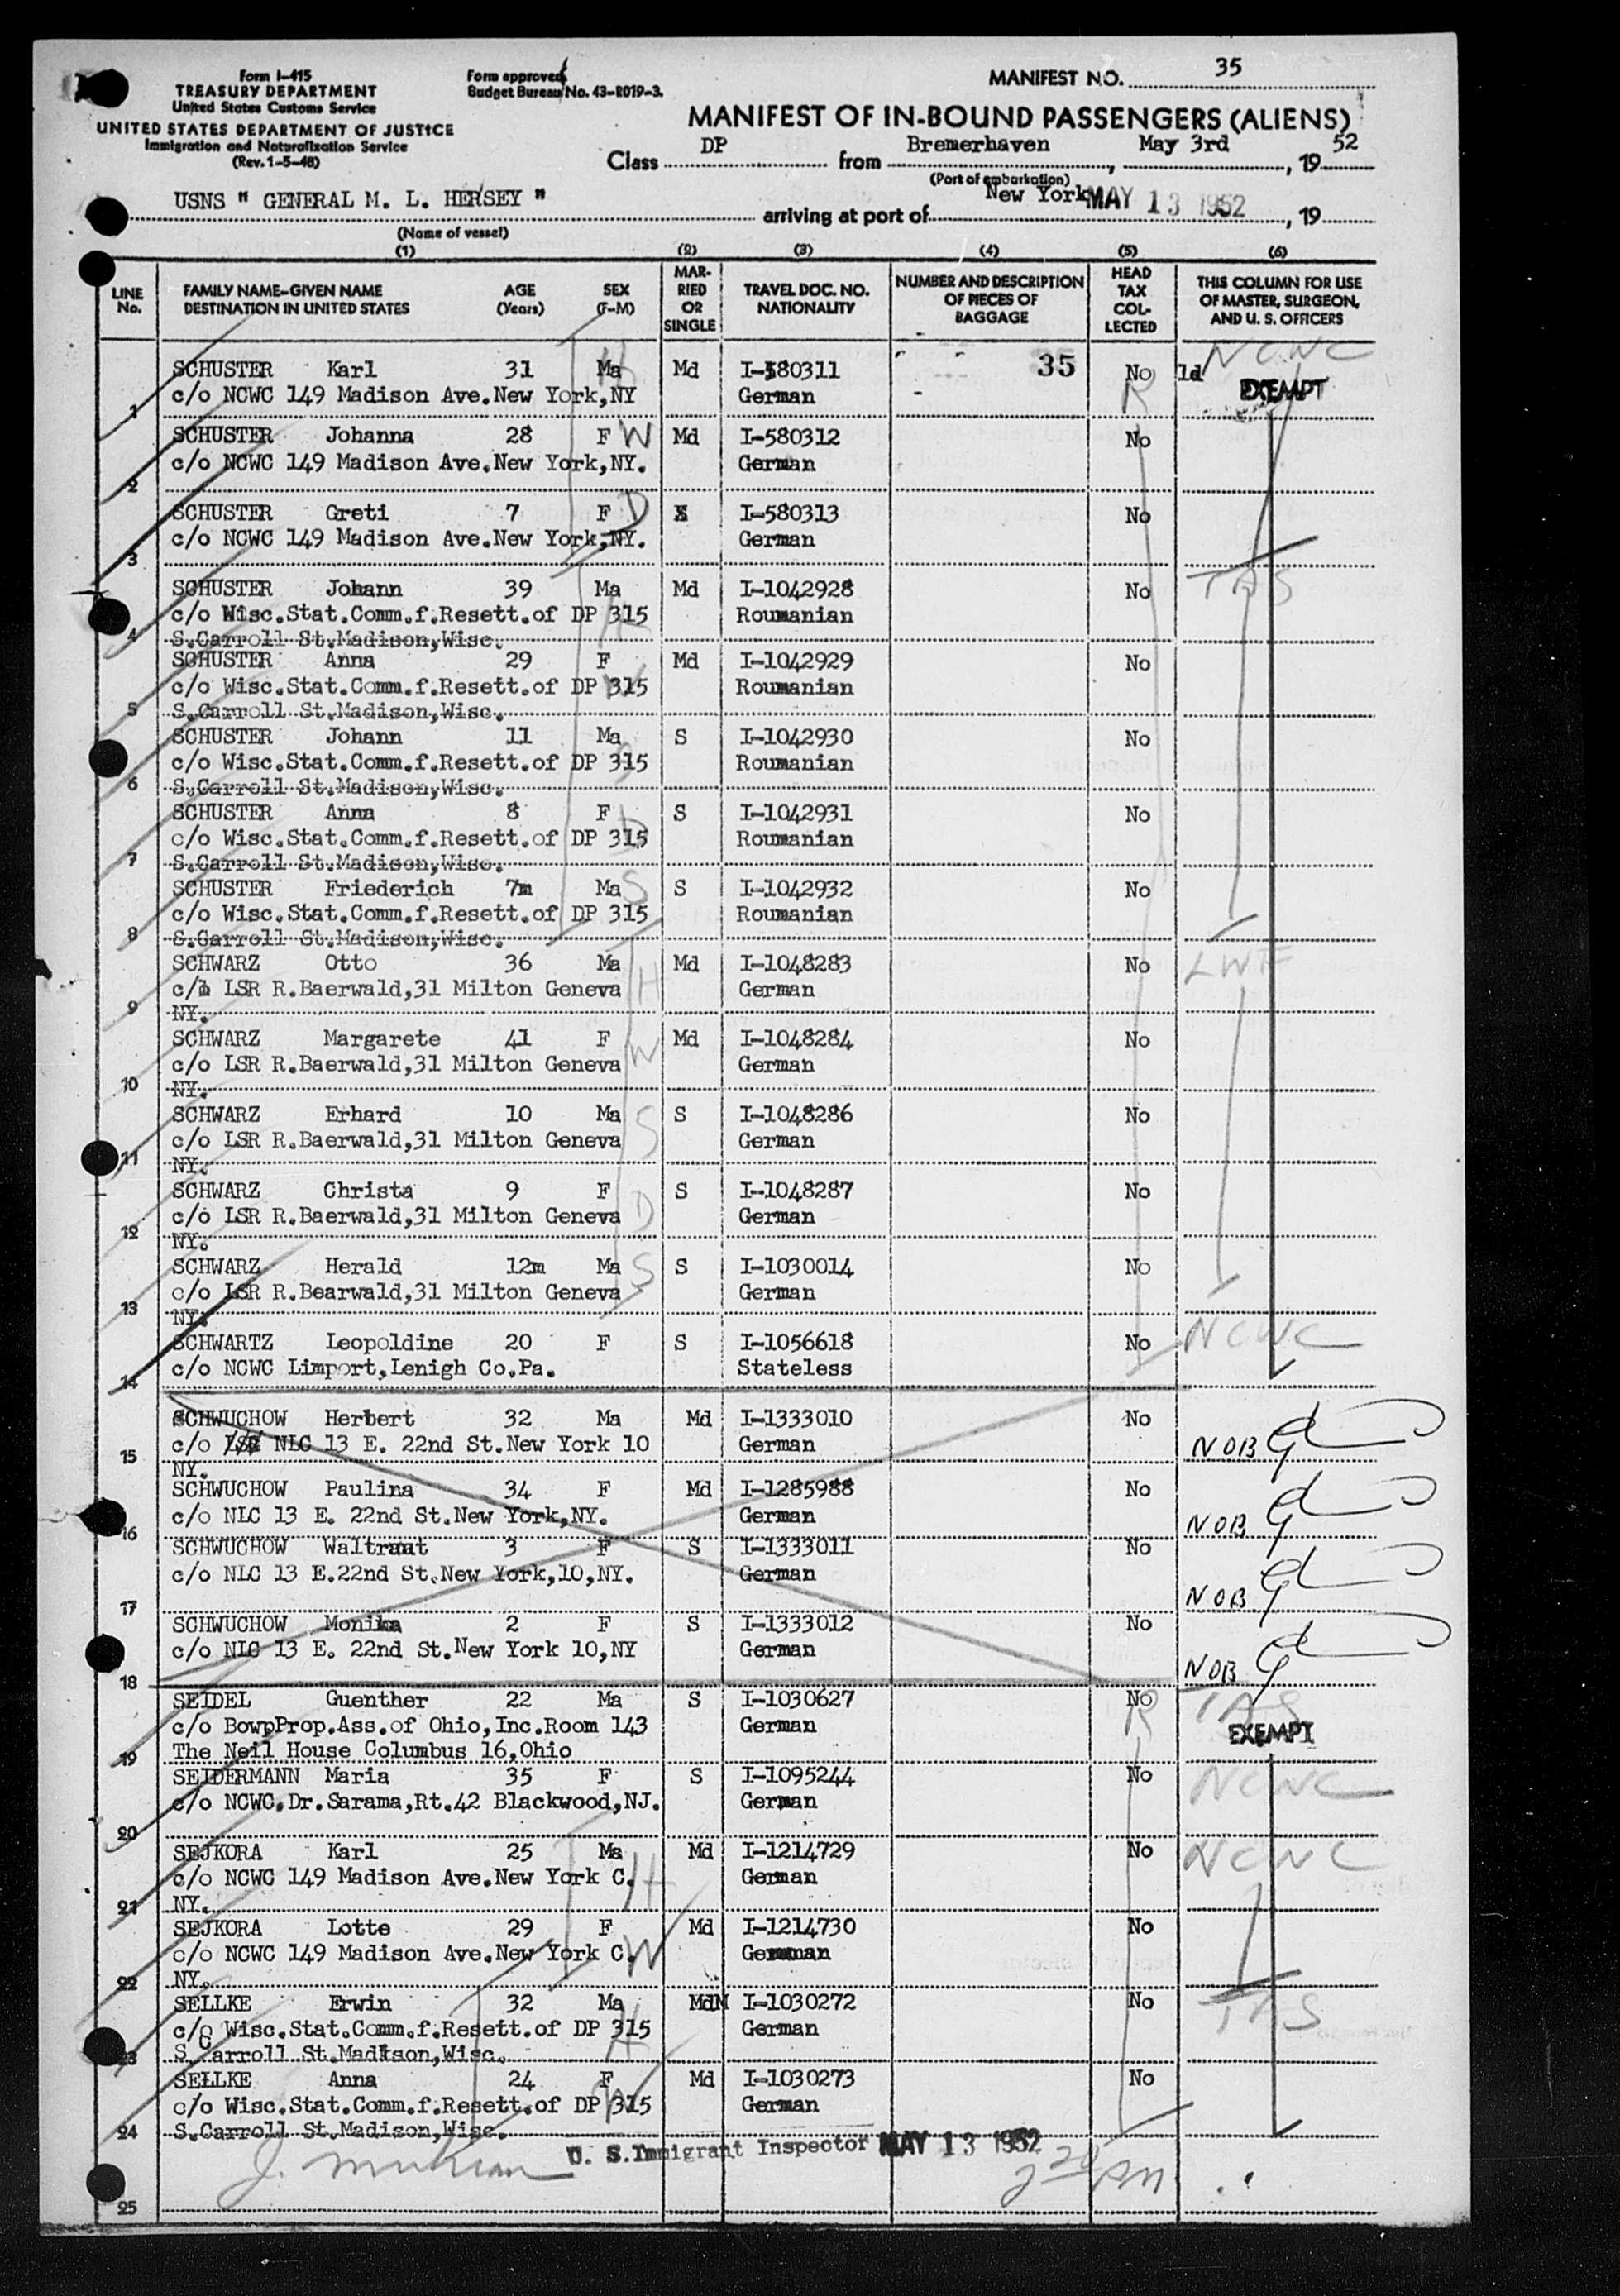 Form I-415
TREASURY DEPARTMENT
United States Customs Service
UNITED STATES DEPARTMENT OF JUSTICE
Immigration and Naturalization Service
(Rev. 1-5-48)
Form approved
Budget Bureau No. 43-R019-3.
MANIFEST NO. 35
MANIFEST OF IN-BOUND PASSENGERS (ALIENS)
Class DP from Bremerhaven, May 3rd, 19 52
(Port of embarkation)
USNS " GENERAL M. L. HERSEY " arriving at port of New York MAY 13 1952, 19
(Name of vessel)
(1) (2) (3) (4) (5) (6)
LINE No. FAMILY NAME-GIVEN NAME DESTINATION IN UNITED STATES AGE (Years) SEX (F-M) MARRIED OR SINGLE TRAVEL DOC. NO. NATIONALITY NUMBER AND DESCRIPTION OF PIECES OF BAGGAGE HEAD TAX COLLECTED THIS COLUMN FOR USE OF MASTER, SURGEON, AND U. S. OFFICERS
SCHUSTER Karl 31 Ma H Md I-580311 35 No ld NCWC
1 c/o NCWC 149 Madison Ave.New York,NY German R EXEMPT
SCHUSTER Johanna 28 F W Md I-580312 No
2 c/o NCWC 149 Madison Ave.New York,NY. German
SCHUSTER Greti 7 F D S I-580313 No
3 c/o NCWC 149 Madison Ave.New York,NY. German
SCHUSTER Johann 39 Ma Md I-1042928 No TAS
4 c/o Wisc.Stat.Comm.f.Resett.of DP 315 H Roumanian
S.Carroll St.Madison,Wisc.
SCHUSTER Anna 29 F Md I-1042929 No
5 c/o Wisc.Stat.Comm.f.Resett.of DP 315 W Roumanian
S.Carroll St.Madison,Wisc.
SCHUSTER Johann 11 Ma S I-1042930 No
6 c/o Wisc.Stat.Comm.f.Resett.of DP 315 S Roumanian
S.Carroll St.Madison,Wisc.
SCHUSTER Anna 8 F S I-1042931 No
7 c/o Wisc.Stat.Comm.f.Resett.of DP 315 D Roumanian
S.Carroll St.Madison,Wisc.
SCHUSTER Friederich 7m Ma S S I-1042932 No
8 c/o Wisc.Stat.Comm.f.Resett.of DP 315 Roumanian
S.Carroll St.Madison,Wisc.
SCHWARZ Otto 36 Ma Md I-1048283 No LWF
9 c/o LSR R.Baerwald,31 Milton Geneva H German
NY.
SCHWARZ Margarete 41 F Md I-1048284 No
10 c/o LSR R.Baerwald,31 Milton Geneva W German
NY.
SCHWARZ Erhard 10 Ma S I-1048286 No
11 c/o LSR R.Baerwald,31 Milton Geneva S German
NY.
SCHWARZ Christa 9 F S I-1048287 No
12 c/o LSR R.Baerwald,31 Milton Geneva D German
NY.
SCHWARZ Herald 12m Ma S S I-1030014 No
13 c/o LSR R.Bearwald,31 Milton Geneva German
NY.
SCHWARTZ Leopoldine 20 F S I-1056618 No NCWC
14 c/o NCWC Limport,Lenigh Co.Pa. Stateless
SCHWUCHOW Herbert 32 Ma Md I-1333010 No
15 c/o LSR NLC 13 E. 22nd St.New York 10 German NOB
NY.
SCHWUCHOW Paulina 34 F Md I-1285988 No
16 c/o NLC 13 E. 22nd St.New York,NY. German NOB
SCHWUCHOW Waltraut 3 F S I-1333011 No
17 c/o NLC 13 E.22nd St.New York,10,NY. German NOB
SCHWUCHOW Monika 2 F S I-1333012 No
18 c/o NLC 13 E. 22nd St.New York 10,NY German NOB
SEIDEL Guenther 22 Ma S I-1030627 No TAS
19 c/o BowpProp.Ass.of Ohio,Inc.Room 143 German R EXEMPT
The Neil House Columbus 16,Ohio
SEIDERMANN Maria 35 F S I-1095244 No NCWC
20 c/o NCWC.Dr.Sarama,Rt.42 Blackwood,NJ. German
SEJKORA Karl 25 Ma Md I-1214729 No NCWC
21 c/o NCWC 149 Madison Ave.New York C. H German
NY.
SEJKORA Lotte 29 F Md I-1214730 No
22 c/o NCWC 149 Madison Ave.New York C. W German
NY.
SELLKE Erwin 32 Ma Md I-1030272 No TAS
23 c/o Wisc.Stat.Comm.f.Resett.of DP 315 H German
S.Carroll St.Madison,Wisc.
SELLKE Anna 24 F Md I-1030273 No
24 c/o Wisc.Stat.Comm.f.Resett.of DP 315 W German
S.Carroll St.Madison,Wisc.
U. S.Immigrant Inspector MAY 13 1952
25